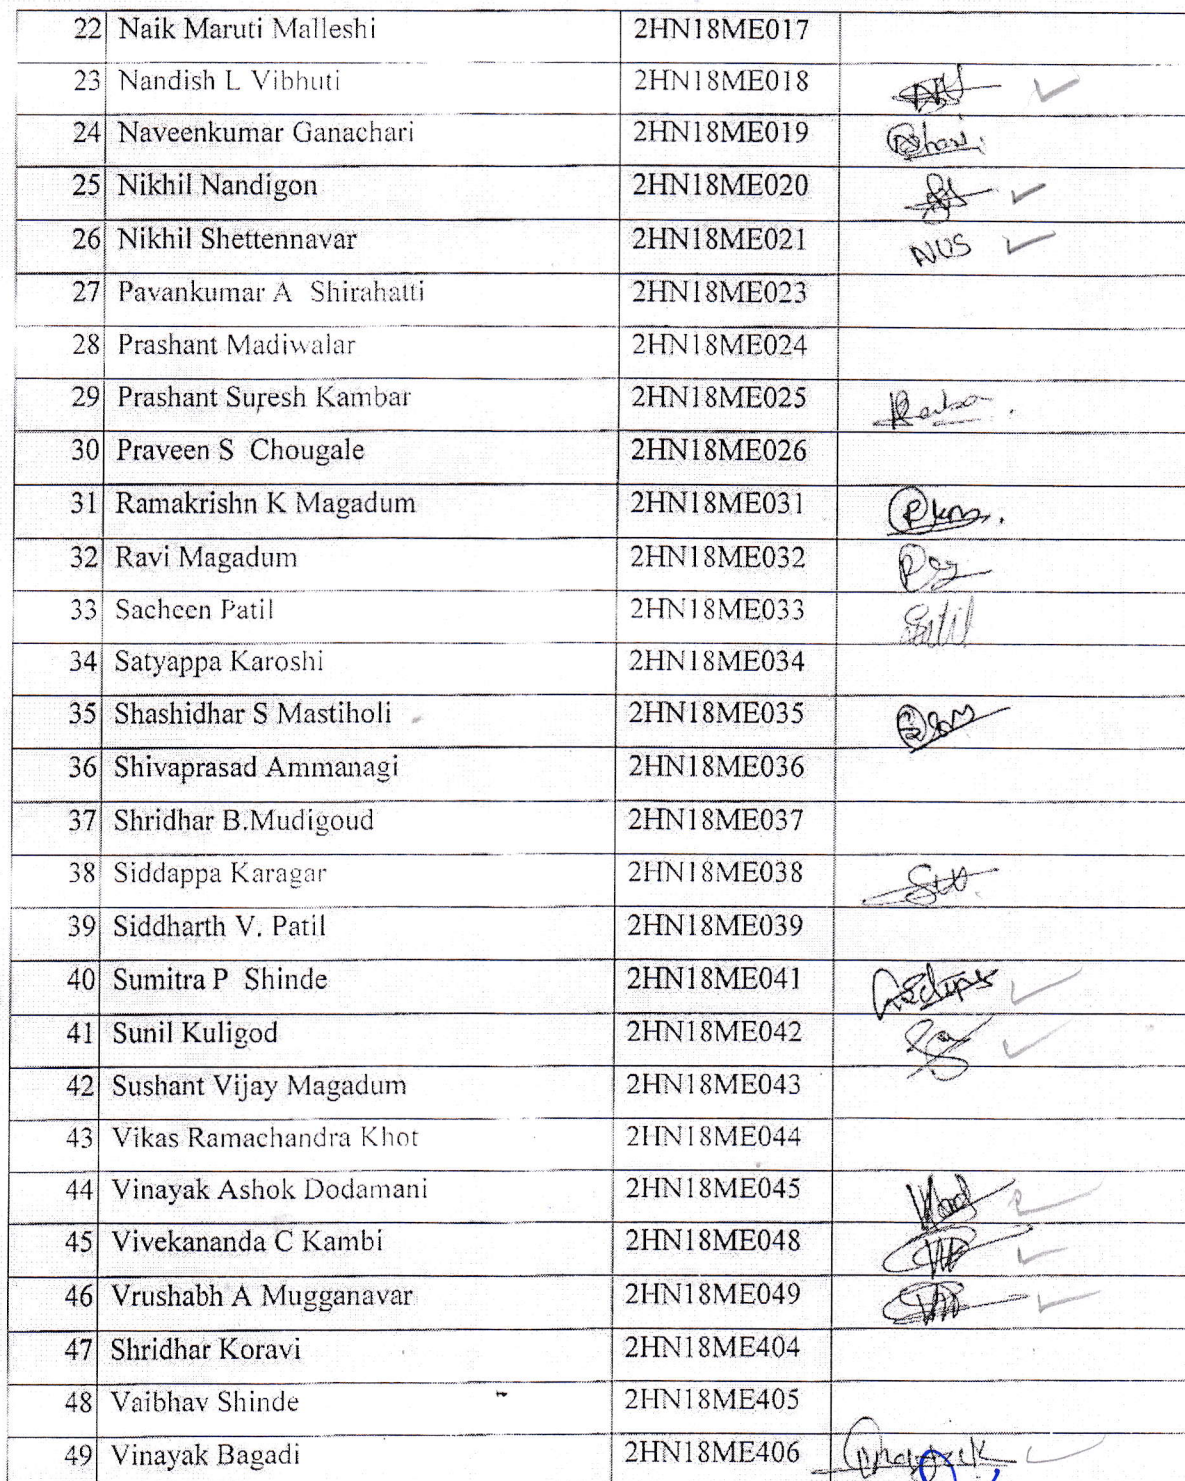 22 Naik Maruti Malleshi 2HN18ME017
23 Nandish L Vibhuti 2HN18ME018
24 Naveenkumar Ganachari 2HN18ME019
25 Nikhil Nandigon 2HN18ME020
26 Nikhil Shettennavar 2HN18ME021 NUS
27 Pavankumar A Shirahatti 2HN18ME023
28 Prashant Madiwalar 2HN18ME024
29 Prashant Suresh Kambar 2HN18ME025
30 Praveen S Chougale 2HN18ME026
31 Ramakrishn K Magadum 2HN18ME031
32 Ravi Magadum 2HN18ME032
33 Sacheen Patil 2HN18ME033
34 Satyappa Karoshi 2HN18ME034
35 Shashidhar S Mastiholi 2HN18ME035
36 Shivaprasad Ammanagi 2HN18ME036
37 Shridhar B.Mudigoud 2HN18ME037
38 Siddappa Karagar 2HN18ME038
39 Siddharth V. Patil 2HN18ME039
40 Sumitra P Shinde 2HN18ME041
41 Sunil Kuligod 2HN18ME042
42 Sushant Vijay Magadum 2HN18ME043
43 Vikas Ramachandra Khot 2HN18ME044
44 Vinayak Ashok Dodamani 2HN18ME045
45 Vivekananda C Kambi 2HN18ME048
46 Vrushabh A Mugganavar 2HN18ME049
47 Shridhar Koravi 2HN18ME404
48 Vaibhav Shinde 2HN18ME405
49 Vinayak Bagadi 2HN18ME406